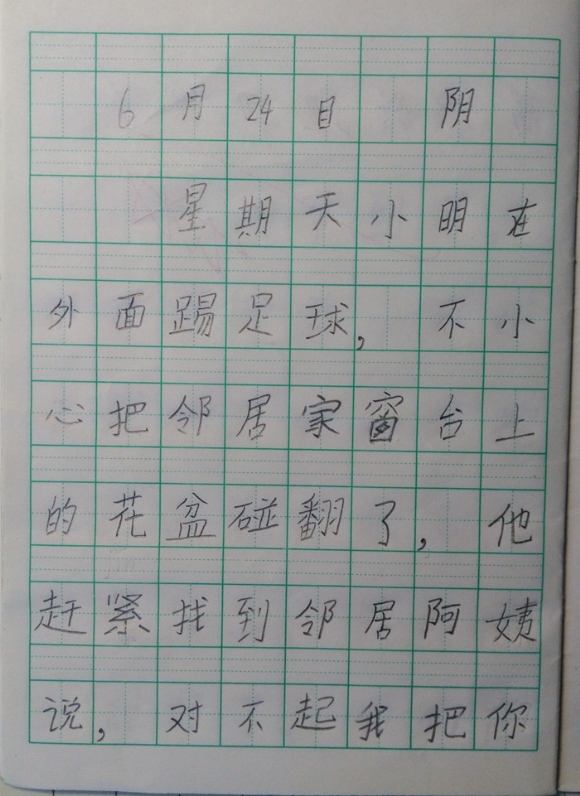 6月24日 阴
星期天小明在
外面踢足球,不小
心把邻居家窗台上
的花盆碰翻了,他
赶紧找到邻居阿姨
说,对不起我把你